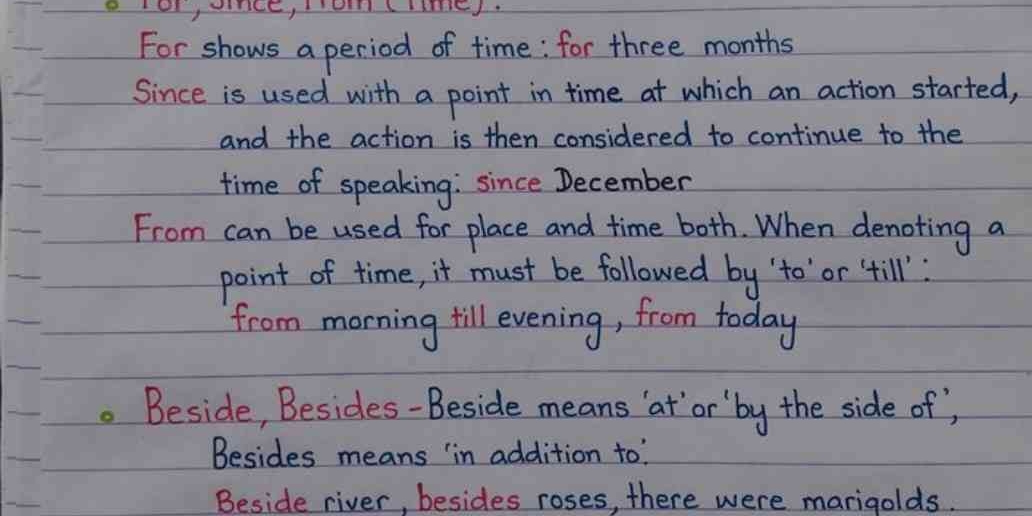 For, Since, From (Time).
For shows a period of time: for three months
Since is used with a point in time at which an action started,
and the action is then considered to continue to the
time of speaking: since December
From can be used for place and time both. When denoting a
point of time, it must be followed by 'to' or 'till':
from morning till evening, from today
Beside, Besides - Beside means 'at' or 'by the side of',
Besides means 'in addition to'.
Beside river, besides roses, there were marigolds.